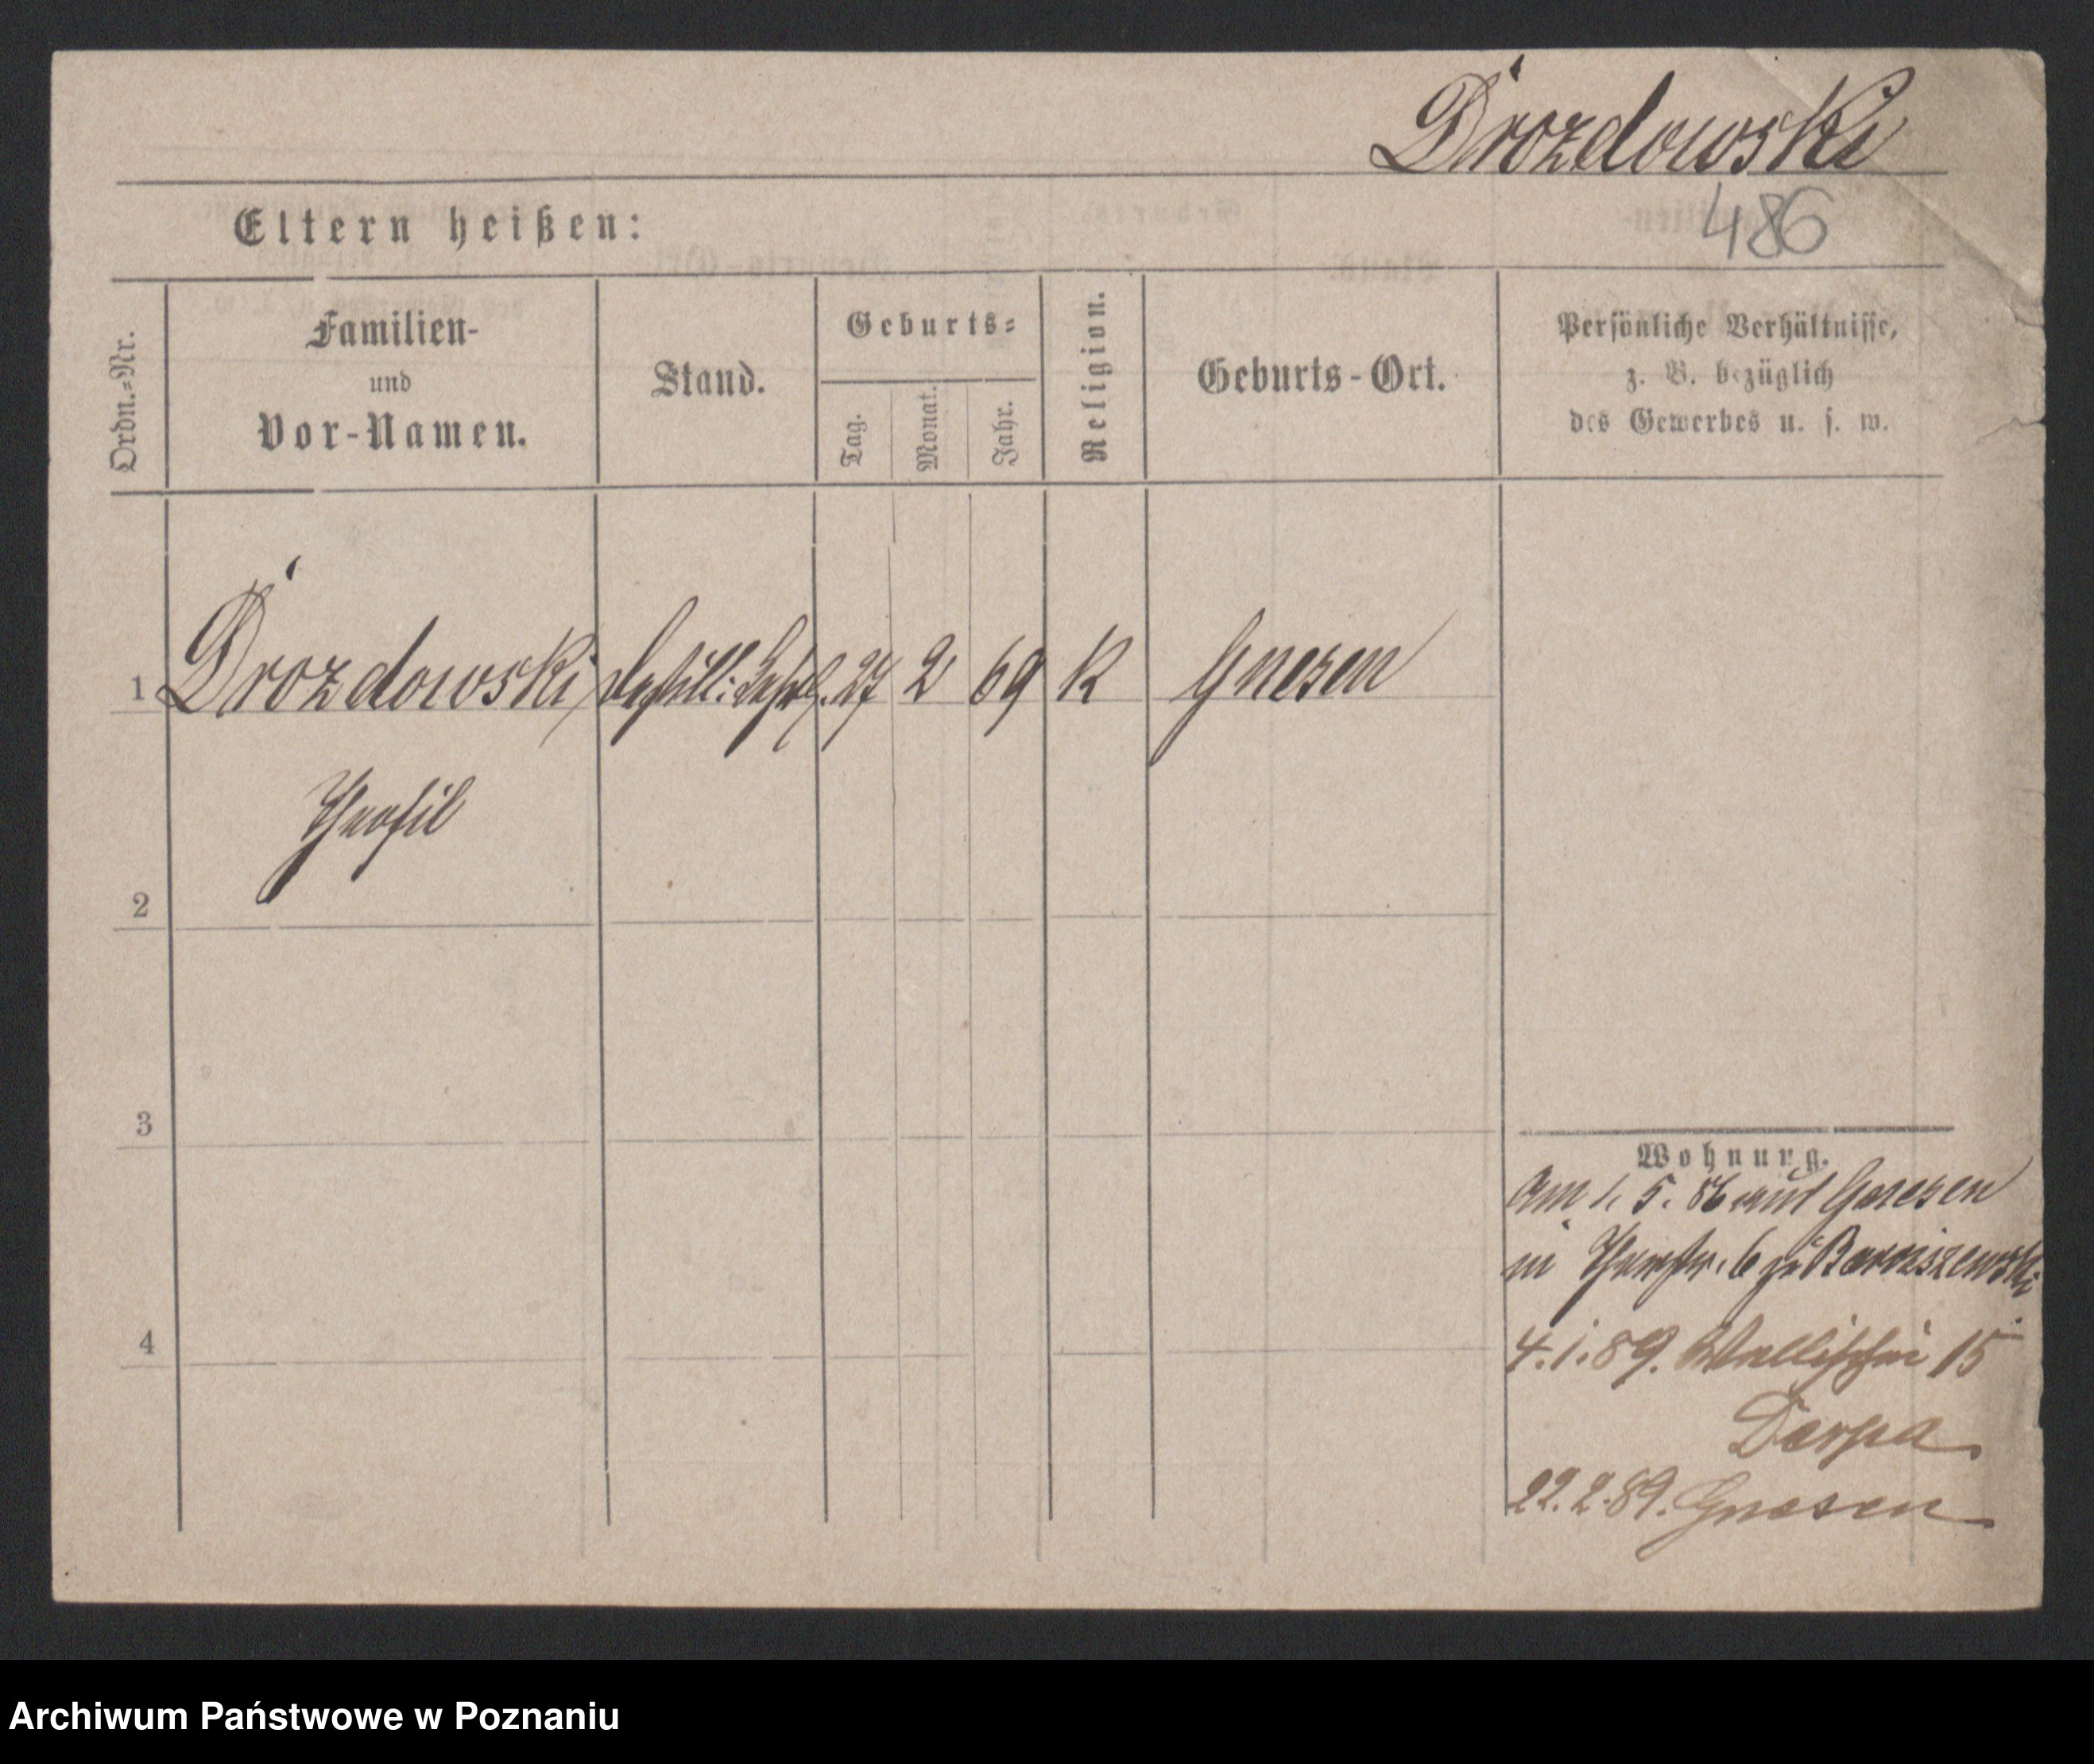 Drozdowski
486
Eltern heißen:
Ordn.-Nr.
Familien-
und
Vor-Namen.
Stand.
Geburts-
Tag.
Monat.
Jahr.
Religion.
Geburts-Ort.
Persönliche Verhältnisse,
z. B. bezüglich
des Gewerbes u. s. w.
1 Drozdowski Destill: Lehrl. 27 2 69 K Gnesen
2
3
4
Wohnung.
Am 1. 5. 86 aus Gnesen
in 6 zu
4.1.89. Wallischei 15
22.2.89. Gnesen
Archiwum Państwowe w Poznaniu